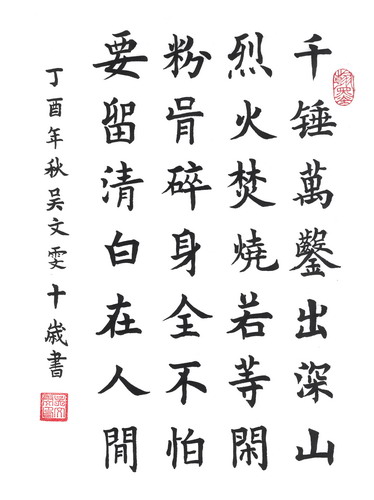 千錘萬鑿出深山
烈火焚燒若等閑
粉骨碎身全不怕
要留清白在人閒
丁酉年秋吴文雯十歲書